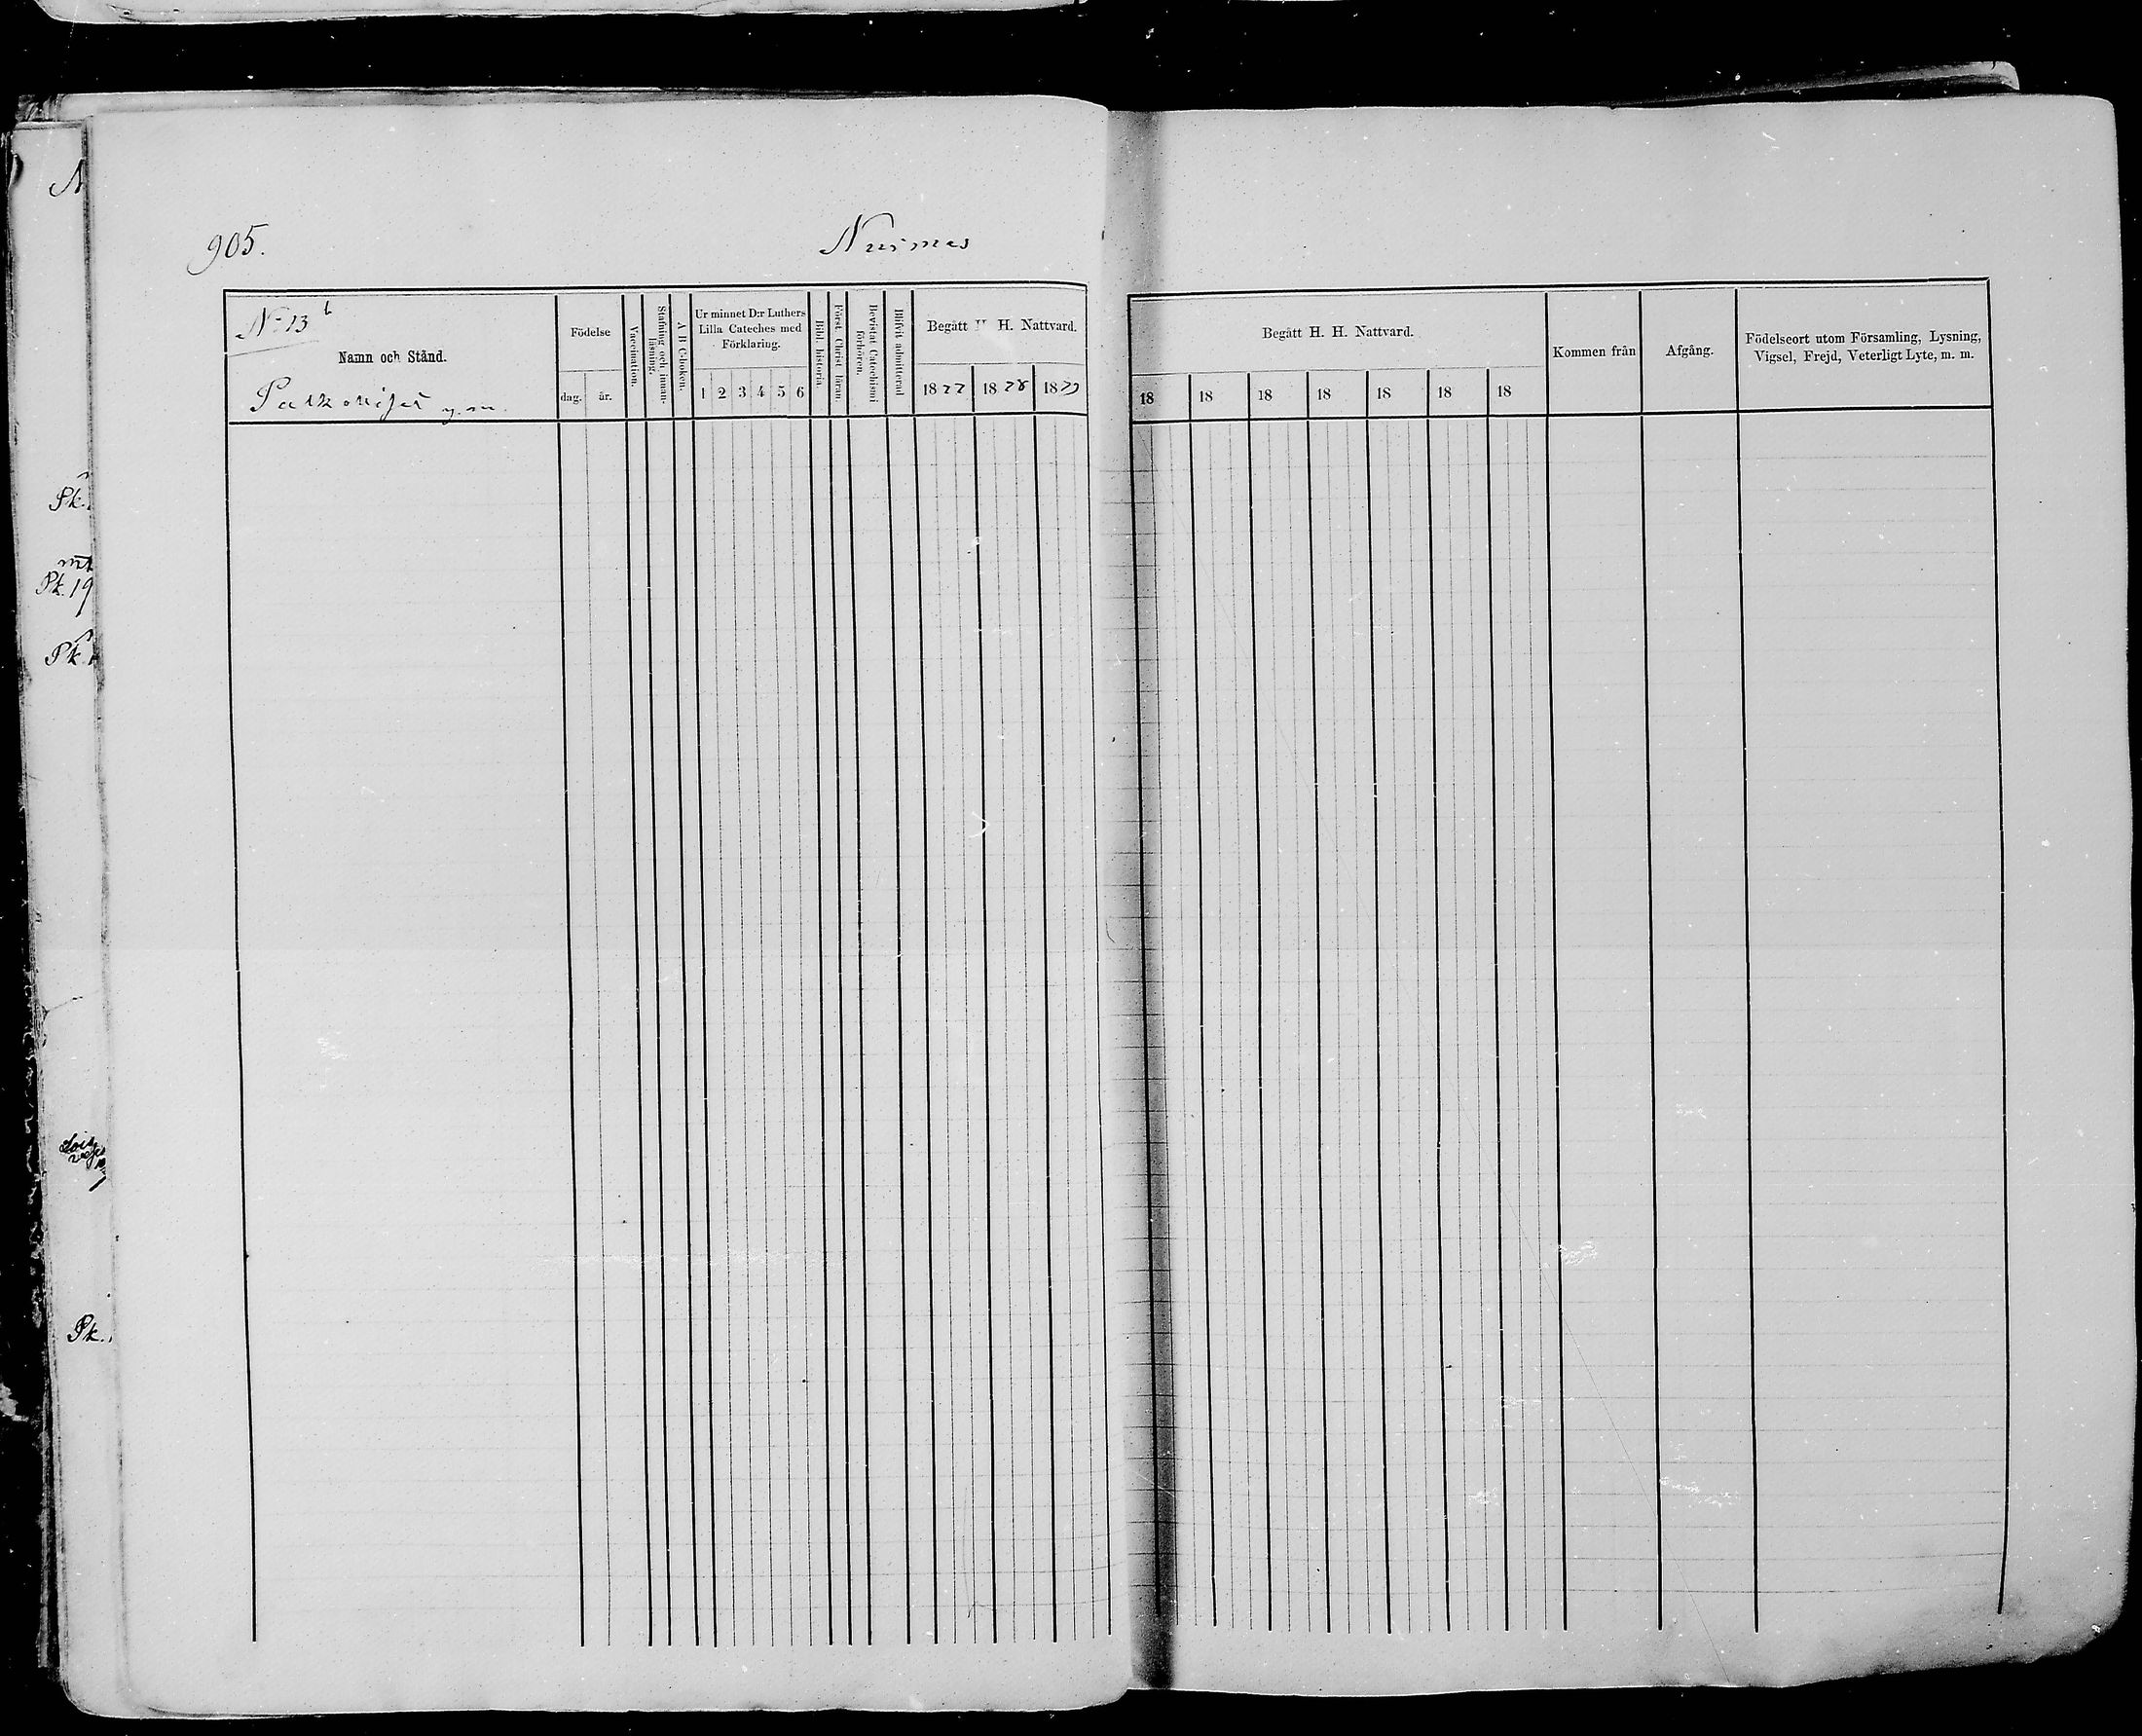 905.
Nurmes
N:o 13 b
Namn och Stånd.
y. m.
Födelse
dag.
år.
Vaccination.
Stafning och innan-
läsning.
A B C-boken.
Ur minnet D:r Luthers
Lilla Cateches med
Förklaring.
1 2 3 4 5 6
Bibl. historia
Först. Christ läran.
Bevistat Catechismi
förhören.
Blifvit admitterad
Begått H. H. Nattvard.
1877 1878 1879
Begått H. H. Nattvard.
18 18 18 18 18 18 18
Kommen från
Afgång.
Födelseort utom Församling, Lysning,
Vigsel, Frejd, Veterligt Lyte, m. m.
N
Pk.
Pk. 19
Pk.
Pk.